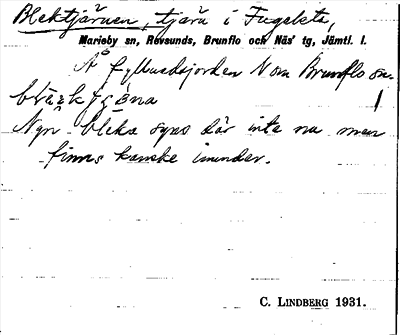 Blektjärnen, tjärn i Fugelsta,
Marieby sn, Revsunds, Brunflo och Näs' tg, Jämtl. l.
På Fylbusdsjorden N om Brunflo sn
Ngn bleka syns där inte nu men
finns kanske inunder.
C. LINDBERG 1931.